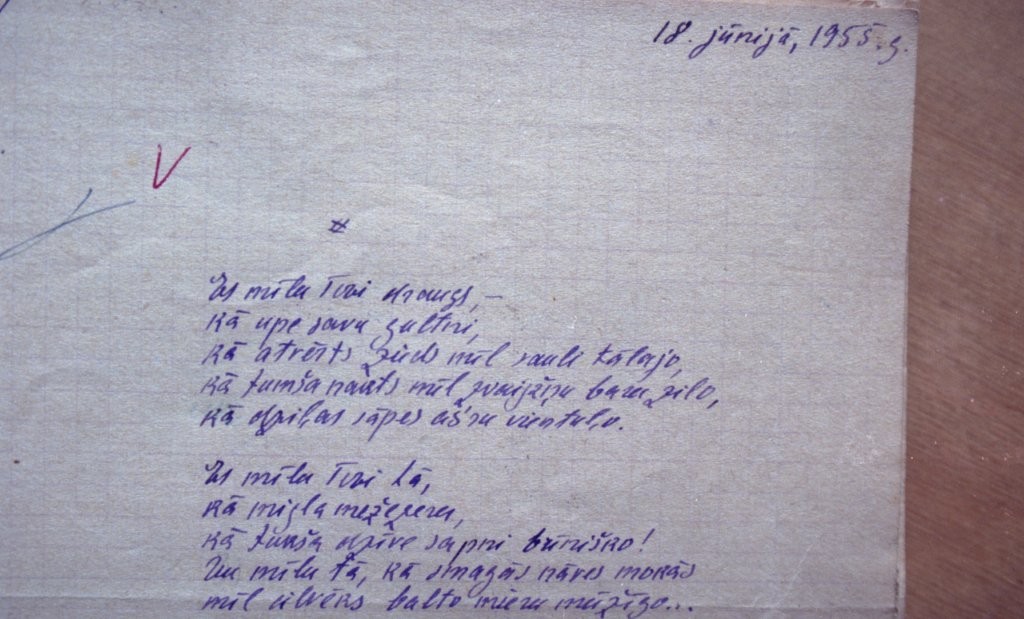 18. jūnijā, 1955. g.
V
Es mīlu Tevi draugs, —
kā upe savu gultni,
kā atvērts zieds mīl sauli tālajo,
kā tumša nakts mīl zvaigžņu baru zilo,
kā dziļas sāpes asaru vientuļo.
Es mīlu Tevi tā,
kā migla mežezeru,
kā tumša dzīve sapni brīnišķo!
Un mīlu tā, kā smagās nāves mokās
mīl cilvēks balto mieru mūžīgo...